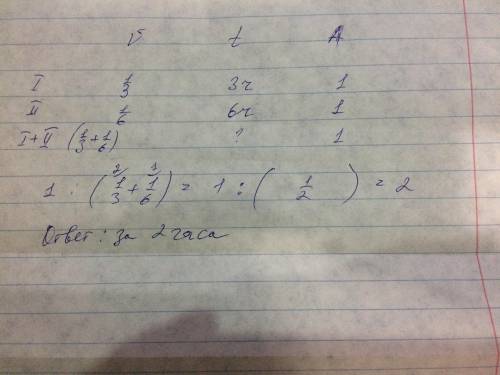 V t A
I 1/3 3ч 1
II 1/6 6ч 1
I+II (1/3+1/6) ? 1
1 : (1/3 2/ + 1/6 1/) = 1 : (1/2) = 2
Ответ: за 2 часа